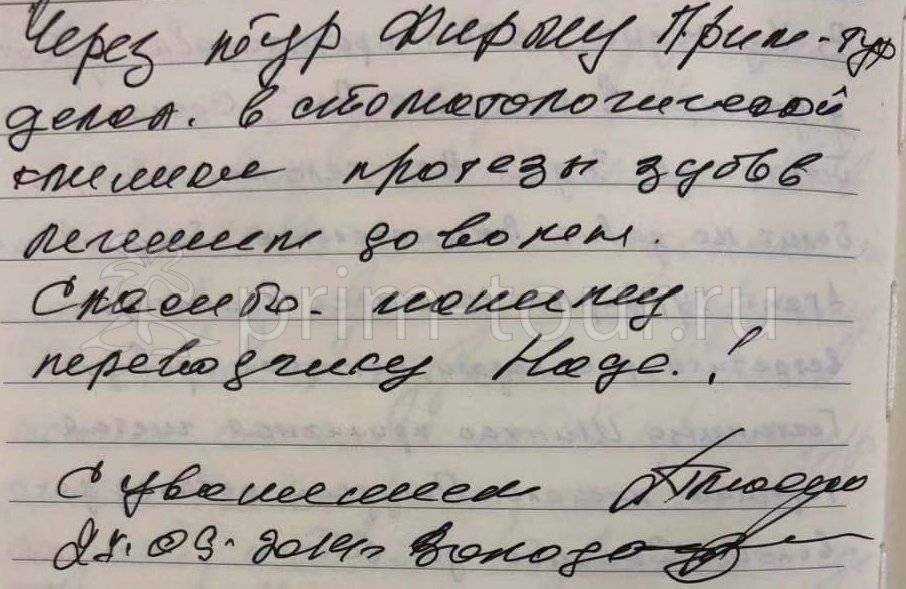 Через тур фирму Прим-тур
делал. в стоматологической
клинике протезы зубов
лечением доволен.
Спасибо. нашему
prim-tour.ru
переводчику Наде.!
С уважением
09. 2014г